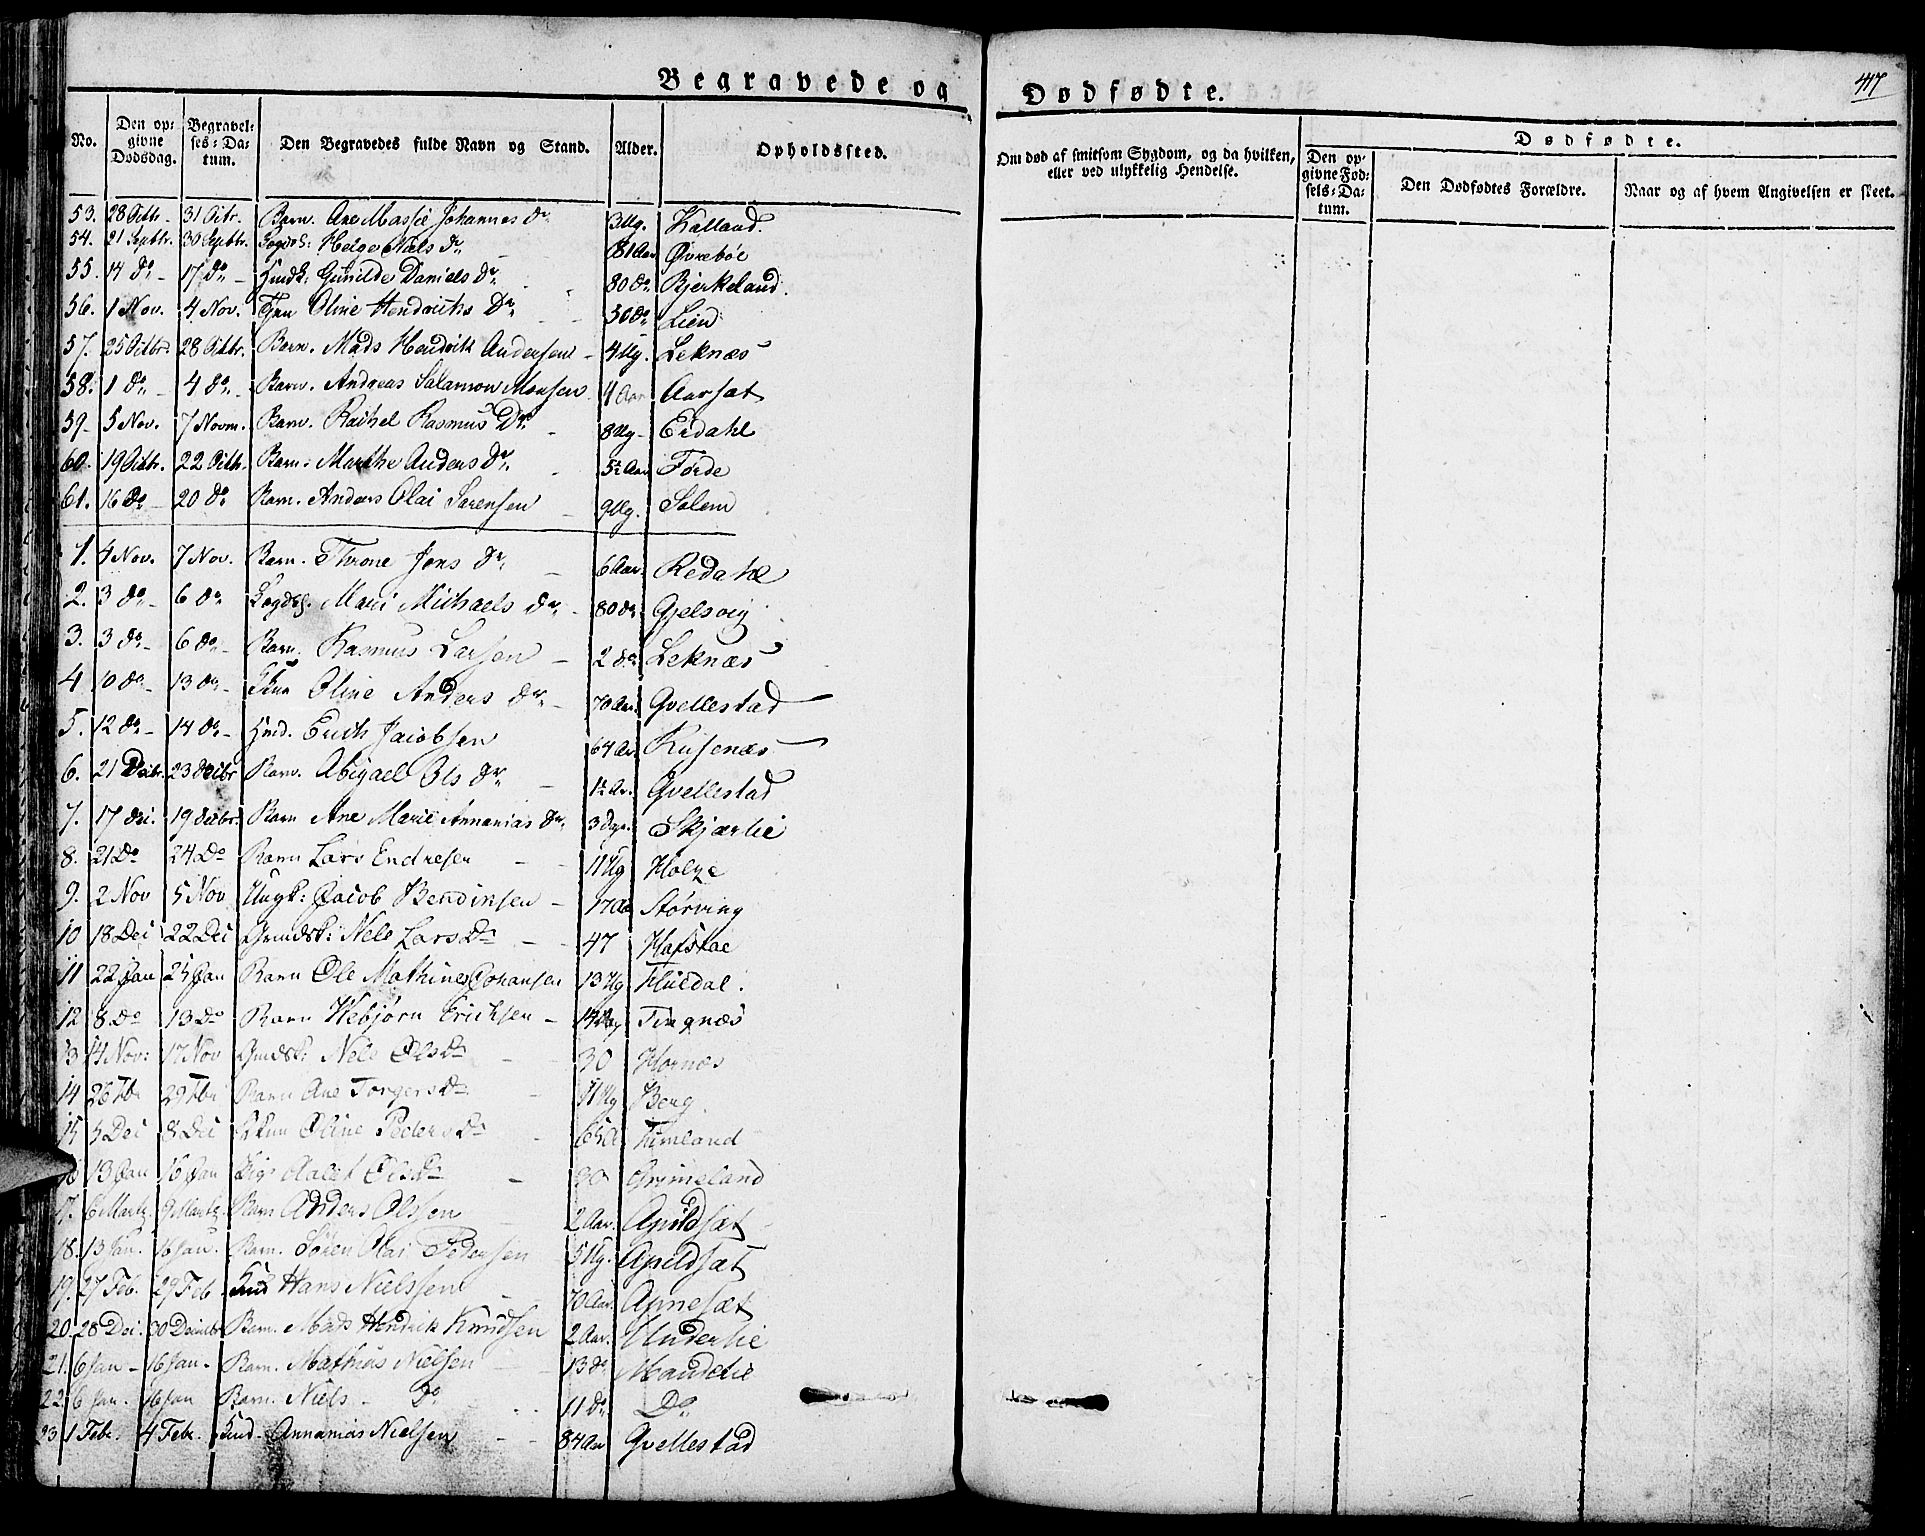 Begravede og Dødfødte.
417
No. Den opgivne Dødsdag. Begravelses-Datum. Den Begravedes fulde Navn og Stand. Alder. Opholdssted. Om død af smitsom Sygdom, og da hvilken, eller ved ulykkelig Hendelse. Dødfødte. Den opgivne Fødsels-Datum. Den Dødfødtes Forældre. Naar og af hvem Angivelsen er skeet.
53. 28 Octbr. 31 Octbr. Barn. Ane Massie Johannes Dr. 3 Ug. Kalland.
54. 21 Septbr. 30 Septbr. Helge Niels Dr. 81 Aar Øvrebøe
55. 14 do 17 do Gunilde Daniels Dr. 80 do Bjerkeland.
56. 1 Nov. 4 Nov. Oline Hendrichs Dr. 30 do Lien
57. 25 Octbr. 28 Octbr. Barn. Mads Hendrik Andersen 4 Ug. Leknæs
58. 1 do 4 do Barn. Andreas Salamon Monsen 4 Aar Aarsæt
59. 5 Nov. 7 Novm. Barn. Rachel Rasmus Dr. 8 Ug. Erdahl
60. 19 Octbr. 22 Octb. Barn. Marthe Anders Dr. 5½ Aar Førde
61. 16 Do 20 do Barn. Anders Olai Sørensen 9 Ug. Solem
1. 4 Nov. 7 Nov. Barn. Throne Jons Dr. 6 Aar. Redahl
2. 3 do 6 do Marie Michaels Dr. 80 do Gjelsvig
3. 3 do 6 do Barn. Rasmus Larsen 2 do Leknæs
4 10 do 13 do Oline Anders Dr. 70 Aar. Qvellestad
5. 12 do 14 do Erich Jacobsen 64 Aar Kusenæs
6. 21 Decbr. 23 decbr Barn. Abigael Ols Dr. 1½ Ar. Qvellestad
7. 17 dec. 19 decbr. Barn Ane Marie Annanias Dr. 3 Dge. Skjærlie
8. 21 Do 24 Do Barn Lars Endresen 11 Ug Holze
9. 2 Nov 5 Nov Ungk: Jacob Bendixsen 17 Aa Størving
10 18 Dec 22 Dec Nele Lars Dr 47 Hafstae
11 22 Jan 25 Jan Barn Ole Mathines Johansen 13 Ug Huldal.
12 8 Do 13 Do Barn Webjørn Erichsen 14 Tingnæs
13 14 Nov: 17 Nov Nele Ols Dr 30 Hornæs
14 26 29 Barn Ane Torgers Dr 11 Ug Berg.
15 5 Dec 8 Dec Oline Peders Dr 65 A Timland
16 13 Jan 16 Jan Aalet Ols Dr Grimeland
17. 6 Martz. 9 Martz. Barn Anders Olssen 2 Aar. Apildsæt
18. 13 Jan. 16 Jan. Barn. Søren Olai Pedersen 5 Ug. Apildsæt
19. 27 Feb. 29 Feb. Hans Nielssen 70 Aar. Apnesæt
20. 28 Dec. 30 Decbr Barn. Mads Hendrik Knudsen 2 Aar. Underlie
21. 6 Jan 16 Jan. Barn. Mathias Nielsen 13 do
22. 6 Jan. 16 Jan Barn. Niels Do 11 do Do
23 1 Febr. 4 Febr. Annanias Nielsen 84 Aar Qvellestad